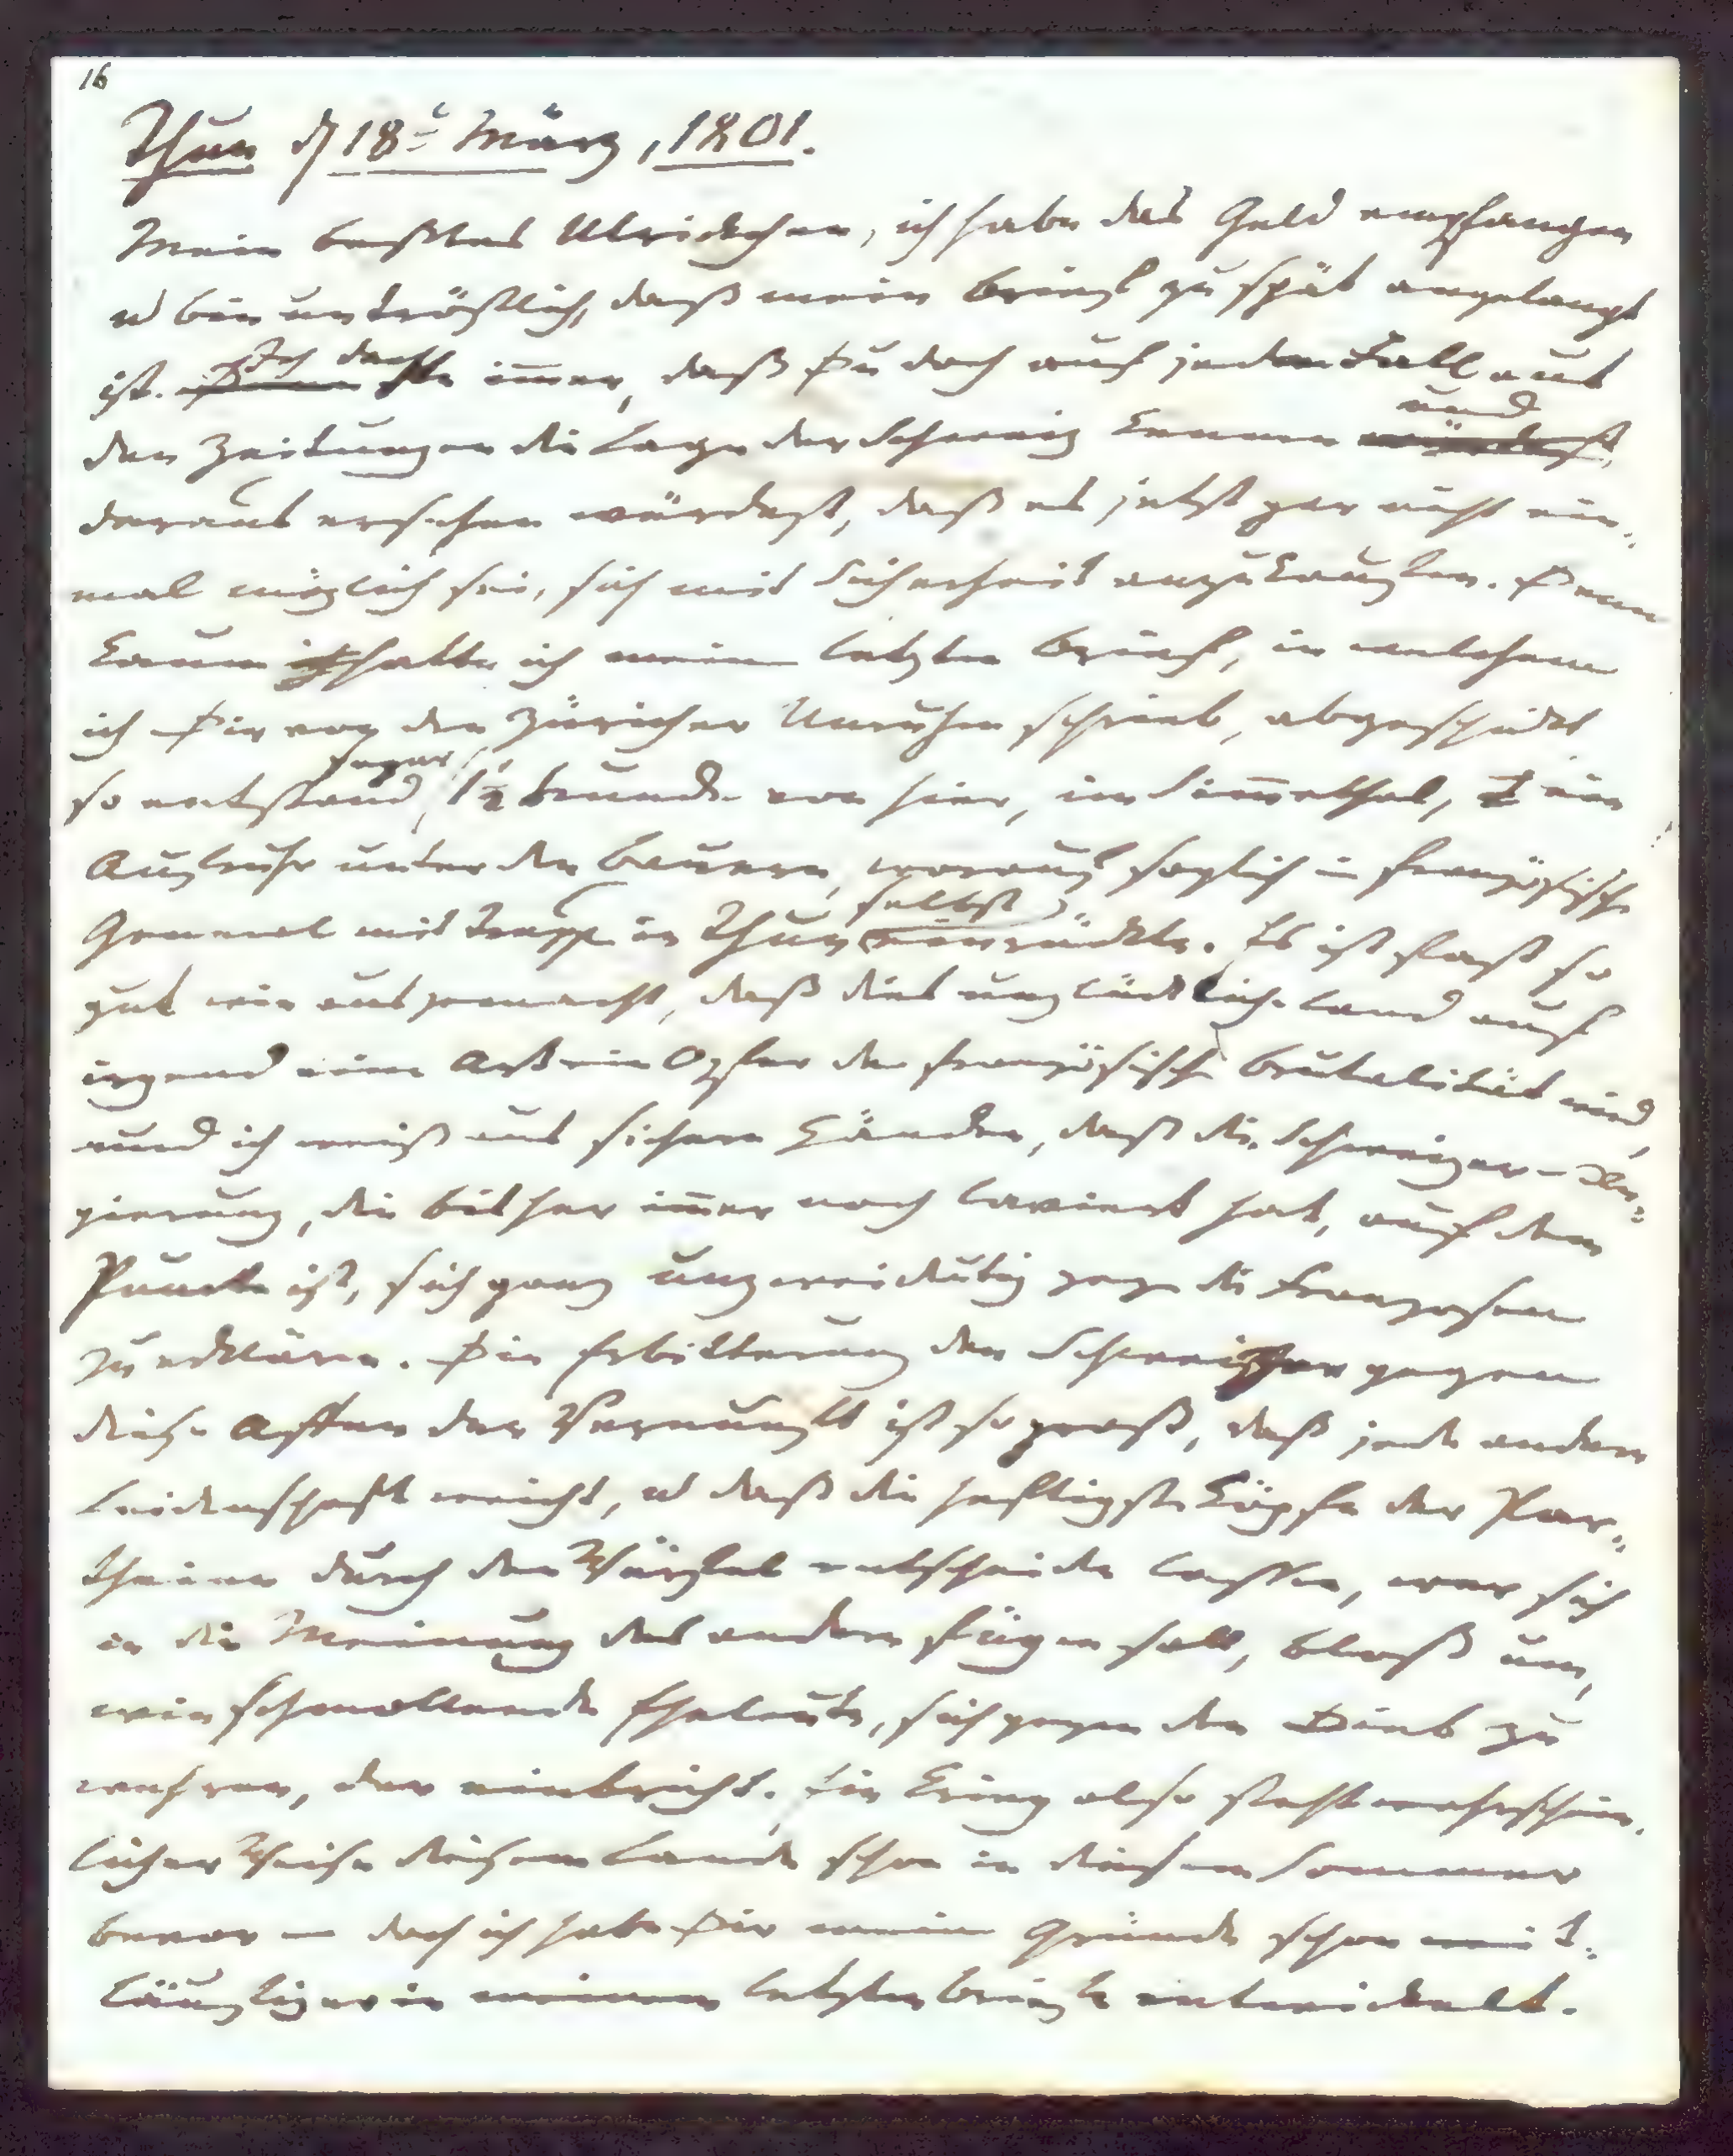 16
Thun d 18t März, 1801.
Mein beßtes Ulrickchen, ich habe das Geld empfangen
u bin untröstlich, daß mein Brief zu spät angelangt
ist. Ich dachte immer, daß Du doch auf jeden Fall aus
den Zeitungen die Lage der Schweiz kennen und
daraus ersehen würdest, daß es jetzt gar nicht ein-
mal möglich sei, sich mit Sicherheit anzukaufen. Denn
kaum hatte ich meinen letzten Brief, in welchem
ich Dir von den Züricher Unruhen schrieb, abgeschickt
so entstand sogar 1½ Stunde von hier, im Simmethal, ein
Aufruhr unter den Bauern, worauf sogleich ein französischer
General mit Truppen in Thun selbst einrückte. Es ist fast so
gut wie ausgemacht, daß dies unglückliche Land auf
irgend eine Art ein Opfer der französischen Brutalität wird,
und ich weiß aus sichern Händen, daß die Schweizer-Re-
gierung, die bisher immer noch laviert hat, auf dem
Puncte ist, sich ganz unzweideutig gegen die Franzosen
zu erklären. Die Erbitterung der Schweizer gegen
diese Affen der Vernunft ist so groß, daß jede andere
Leidenschaft weicht, u daß die heftigsten Köpfe der Par-
theien durch den Würfel entscheiden lassen, wer sich
in die Meinung des andern fügen soll, bloß um,
wie schmollende Eheleute, sich gegen den Dieb zu
wehren, der einbricht. Ein Krieg also steht wahrschein-
licher Weise diesem Lande schon in diesem Sommer
bevor – doch ich habe Dir meine Gründe schon weit-
läufiger in meinem letzten Briefe entwickelt.